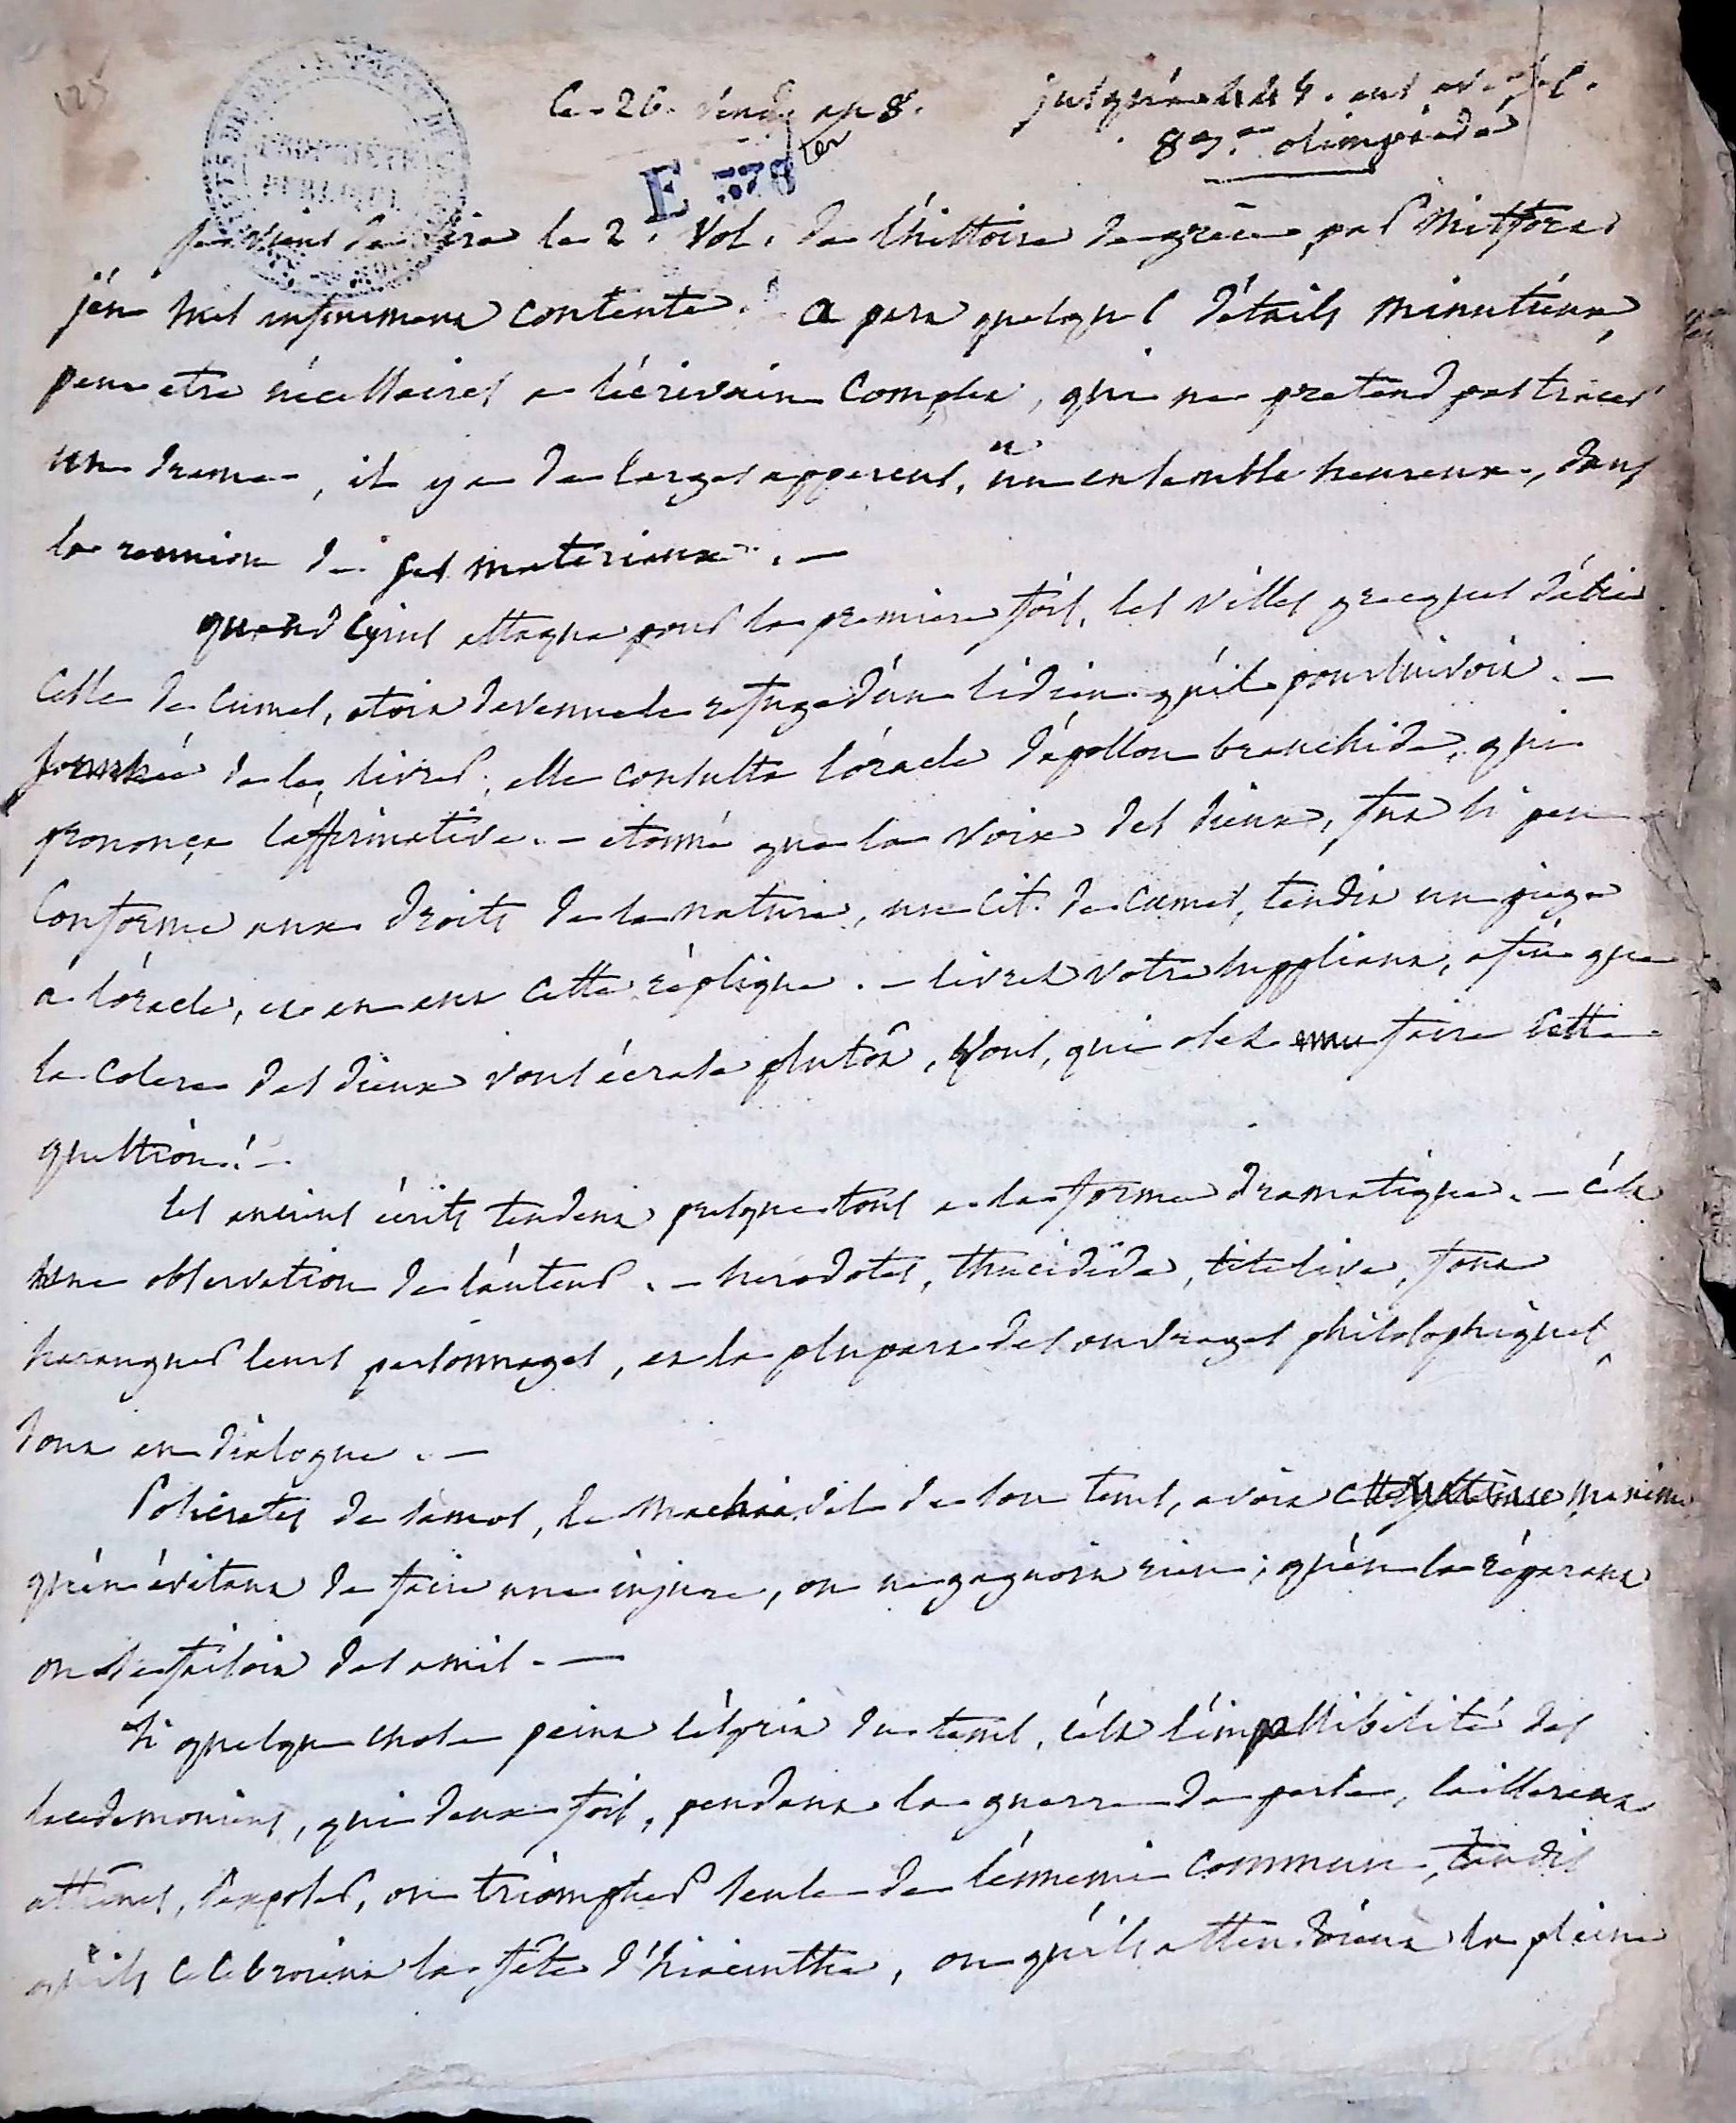 125
le 26. vend. an 8. jusqu'à 444. ans av. J. C.
87.me olimpiade
E 378 ter
je viens de lire le 2. vol. de l'histoire de grèce par Mitford
j'en suis infiniment contente. a part quelques détails minutieux,
peut etre nécessaires a l'écrivain complet, qui ne pretend pas tracer
un drame, il y a de larges apperçus, un ensemble heureux, dans
la reunion de ses matériaux. —
quand Cyrus attaqua pour la premiere fois, les villes grecques d'asie
celle de Cumes, étoit devenue le refuge d'un lidien qu'il poursuivoit. —
sommée de le livrer, elle consulta l'oracle d'apollon branchide, qui
prononça l'affirmative. — etonné que la voix des dieux, fut si peu
conforme aux droits de la nature, un cit. de Cumes, tendit un piege
a l'oracle, et en eut cette réplique. — livrez votre suppliant, afin que
la colere des dieux vous écrase plutôt, vous, qui osez faire cette
question! —
les anciens écrits tendent presque tous a la forme dramatique. — c'est
une observation de l'auteur. — herodotes, thucidide, tite live, font
haranguer leurs personnages, et la plupart des ouvrages philosophiques,
sont en dialogue. —
Policrates de samos, le machiavel de son tems, avoit cette maxime
qu'en évitant de faire une injure, on ne gagnoit rien; qu'en la réparant
on se faisoit des amis. —
si quelque chose peint l'esprit du tems, c'est l'impassibilité des
lacedemoniens, qui deux fois, pendant la guerre de perse, laisserent
athênes, s'exposer, ou triompher seule de l'ennemi commun, tandis
qu'ils celebroient la fête d'hiacinthe, ou qu'ils attendoient la pleine